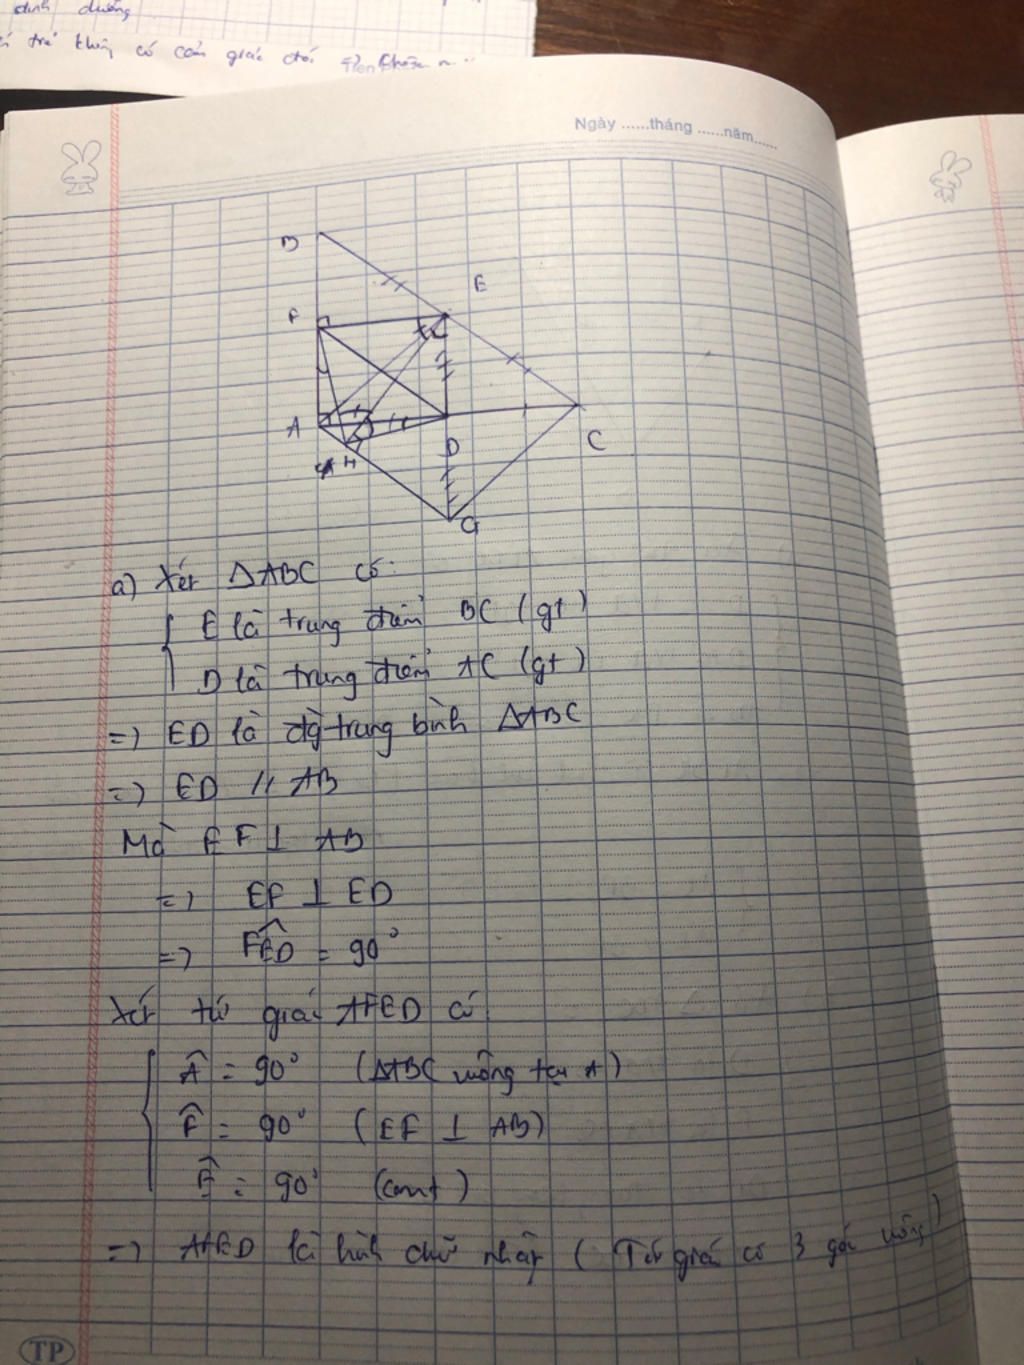 dinh dưỡng
trẻ không có cảm giác đói
Ngày ......tháng ......năm......
B
E
F
A
D
C
H
G
a) Xét ΔABC có:
E là trung điểm BC (gt)
D là trung điểm AC (gt)
=> ED là đg trung bình ΔABC
=> ED // AB
Mà EF ⊥ AB
=> EF ⊥ ED
=> FÊD = 90°
Xét tứ giác AFED có
Â = 90° (ΔABC vuông tại A)
F̂ = 90° (EF ⊥ AB)
Ê = 90° (cmt)
=> AFED là hình chữ nhật (Tứ giác có 3 góc vuông)
TP